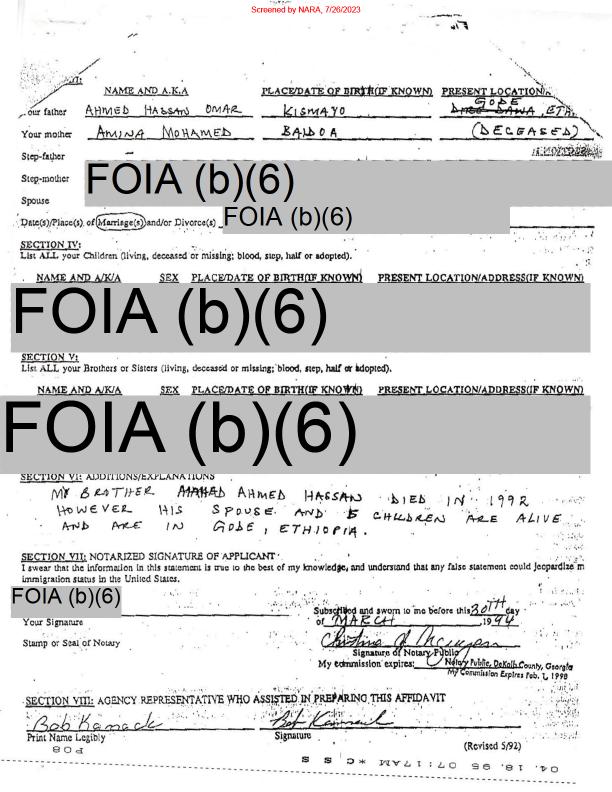 Screened by NARA, 7/26/2023
NAME AND A.K.A PLACE/DATE OF BIRTH(IF KNOWN) PRESENT LOCATION
GODE
our father AHMED HASSAN OMAR KISMAYO DIRE DAWA, ETH.
Your mother AMINA MOHAMED BAIDOA (DECEASED)
Step-father
Step-mother FOIA (b)(6)
Spouse
Date(s)/Place(s) of (Marriage(s) and/or Divorce(s) FOIA (b)(6)
SECTION IV:
List ALL your Children (living, deceased or missing; blood, step, half or adopted).
NAME AND A/K/A SEX PLACE/DATE OF BIRTH(IF KNOWN) PRESENT LOCATION/ADDRESS(IF KNOWN)
FOIA (b)(6)
SECTION V:
List ALL your Brothers or Sisters (living, deceased or missing; blood, step, half or adopted).
NAME AND A/K/A SEX PLACE/DATE OF BIRTH(IF KNOWN) PRESENT LOCATION/ADDRESS(IF KNOWN)
FOIA (b)(6)
SECTION VI: ADDITIONS/EXPLANATIONS
MY BROTHER AHMED HASSAN DIED IN 1992
HOWEVER HIS SPOUSE AND 5 CHILDREN ARE ALIVE
AND ARE IN GODE, ETHIOPIA.
SECTION VII: NOTARIZED SIGNATURE OF APPLICANT
I swear that the information in this statement is true to the best of my knowledge, and understand that any false statement could jeopardize m
immigration status in the United States.
FOIA (b)(6)
Subscribed and sworn to me before this 30TH day
Your Signature of MARCH, 1994
Stamp or Seal of Notary
Signature of Notary Public
My commission expires: Notary Public, DeKalb County, Georgia
My Commission Expires Feb. 1, 1998
SECTION VIII: AGENCY REPRESENTATIVE WHO ASSISTED IN PREPARING THIS AFFIDAVIT
Bob Kamack
Print Name Legibly Signature
(Revised 5/92)
P08
04.18.95 07:17AM *C S S